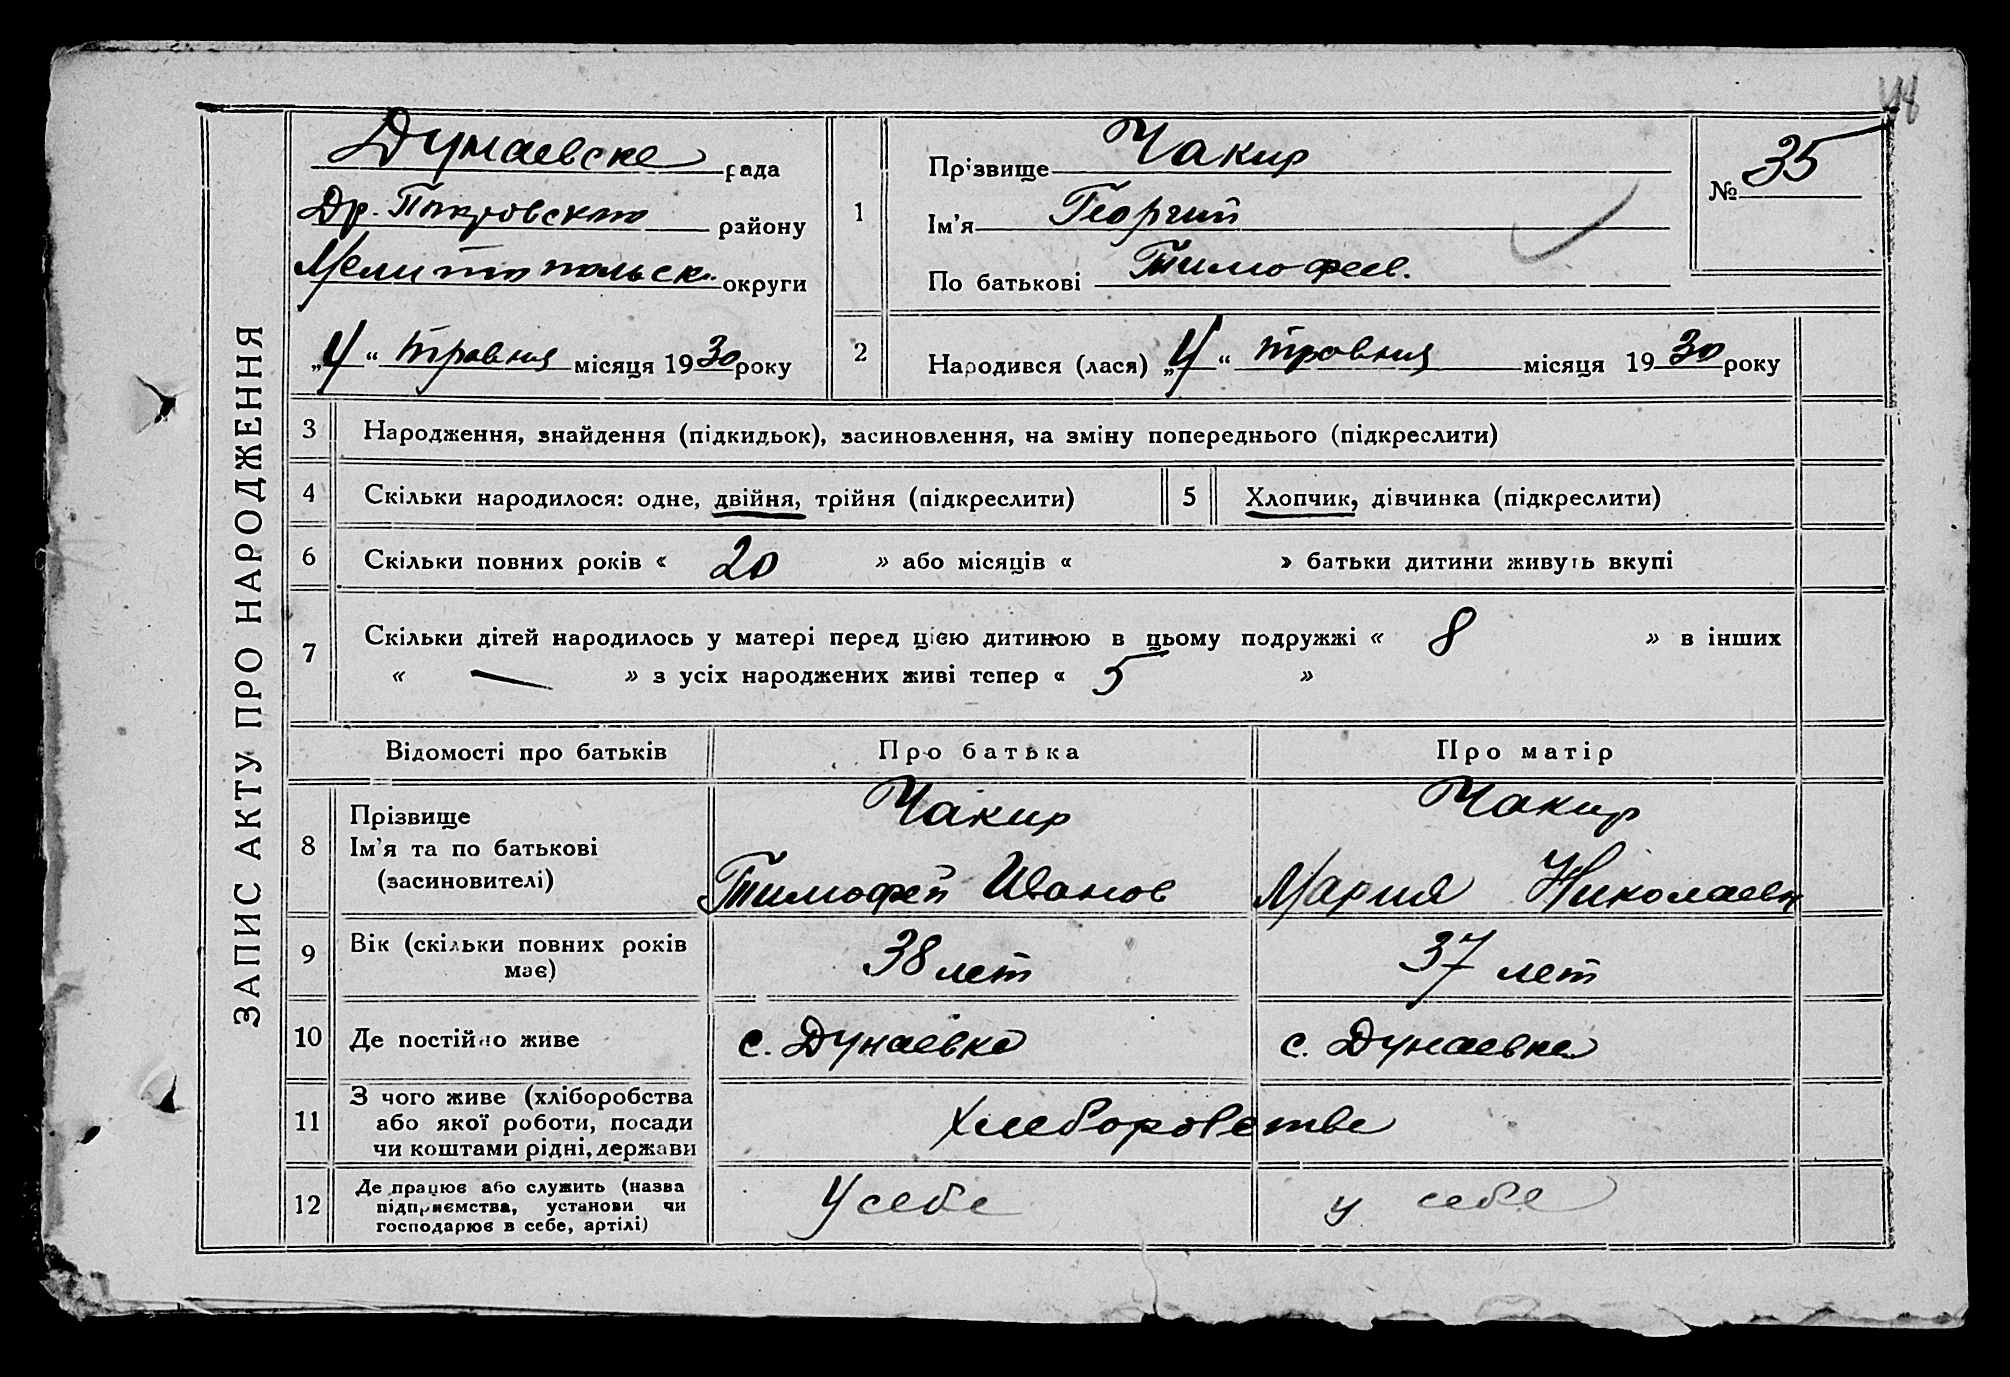 48
ЗАПИС АКТУ ПРО НАРОДЖЕННЯ
Дунаевске рада
Др. Покровского району
Мелитопольск. округи
„4“ травня місяця 1930 року
1
Прізвище Чакир
Ім’я Георгий
По батькові Тимофеев.
№ 35
2
Народився (лася) „4“ травня місяця 1930 року
3 Народження, знайдення (підкидьок), засиновлення, на зміну попереднього (підкреслити)
4 Скільки народилося: одне, двійня, трійня (підкреслити)
5 Хлопчик, дівчинка (підкреслити)
6 Скільки повних років « 20 » або місяців « » батьки дитини живуть вкупі
7 Скільки дітей народилось у матері перед цією дитиною в цьому подружжі « 8 » в інших
« — » з усіх народжених живі тепер « 5 »
Відомості про батьків Про батька Про матір
8
Прізвище
Ім’я та по батькові
(засиновителі)
Чакир
Тимофей Иванов
Чакир
Мария Николаевн
9
Вік (скільки повних років
має)
38 лет
37 лет
10 Де постійно живе с. Дунаевка с. Дунаевка
11
З чого живе (хліборобства
або якої роботи, посади
чи коштами рідні, держави
Хлеборобстве
12
Де працює або служить (назва
підприємства, установи чи
господарює в себе, артілі)
У себе
у себе